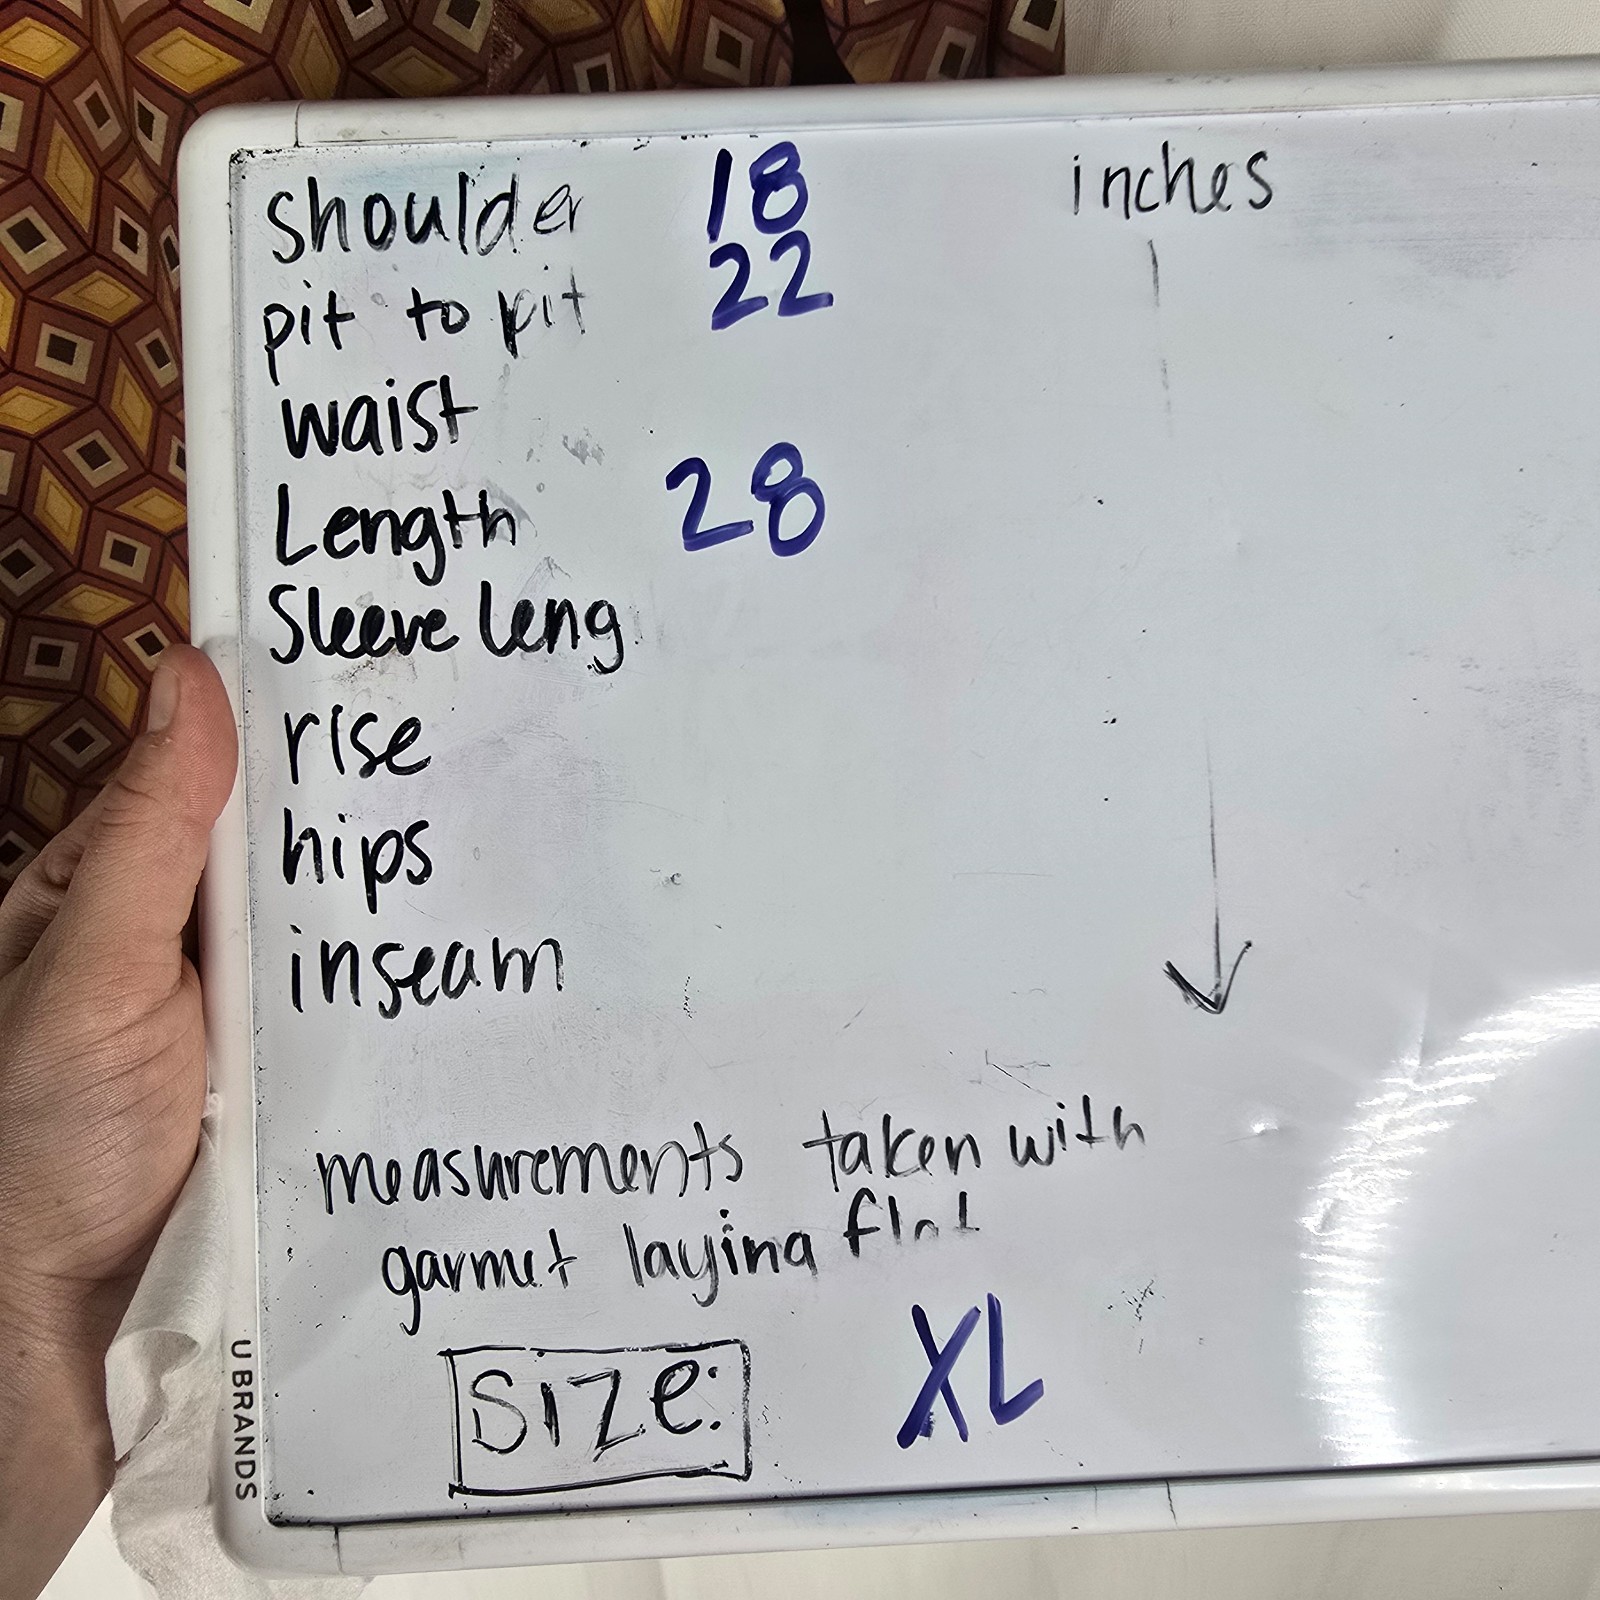 shoulder 18 inches
pit to pit 22
waist
Length 28
Sleeve leng
rise
hips
inseam
measurements taken with
garmet laying flat
SIZe: XL
U BRANDS